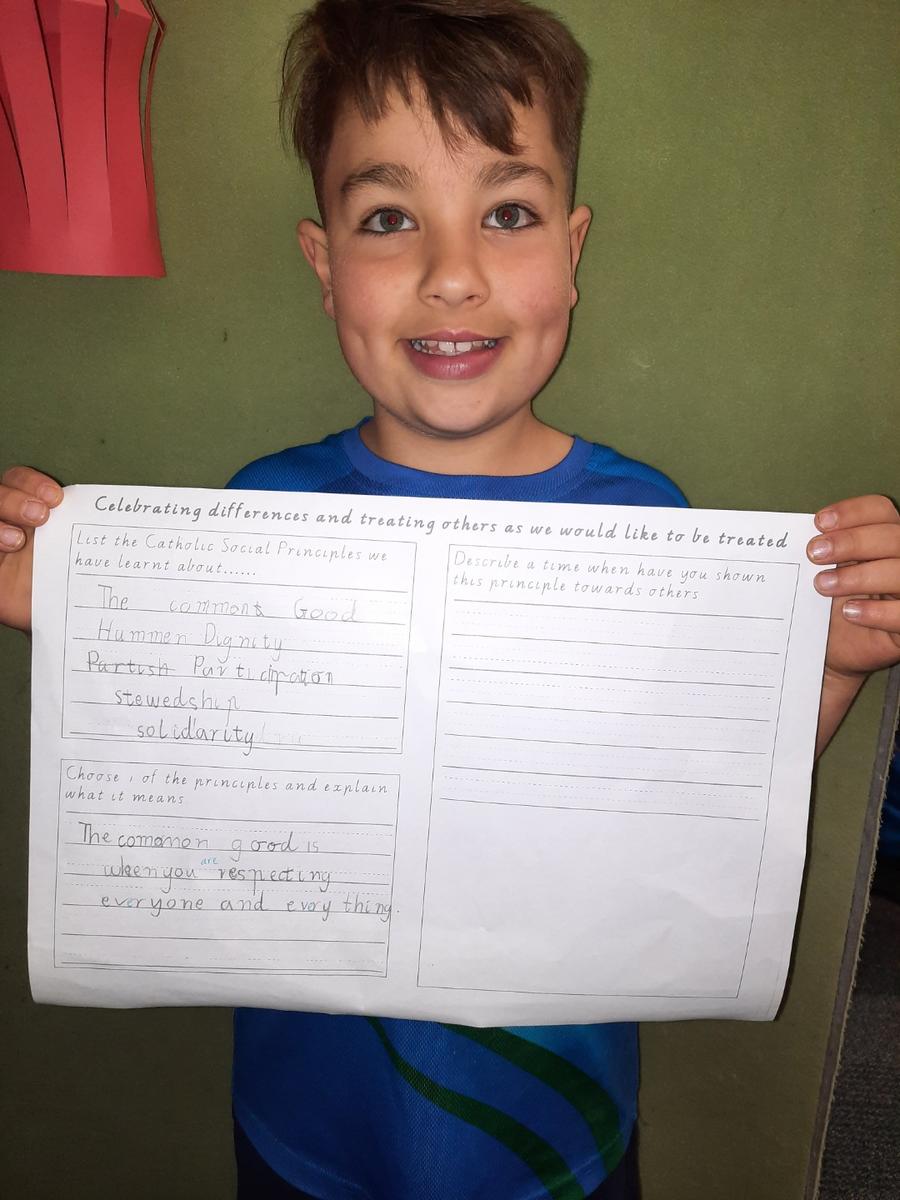 Celebrating differences and treating others as we would like to be treated
List the Catholic Social Principles we
have learnt about......
The common Good
Hummen Dignity
Partish Participation
stewedship
solidarity
Choose 1 of the principles and explain
what it means
The comomon good is
when you are respecting
everyone and every thing.
Describe a time when have you shown
this principle towards others